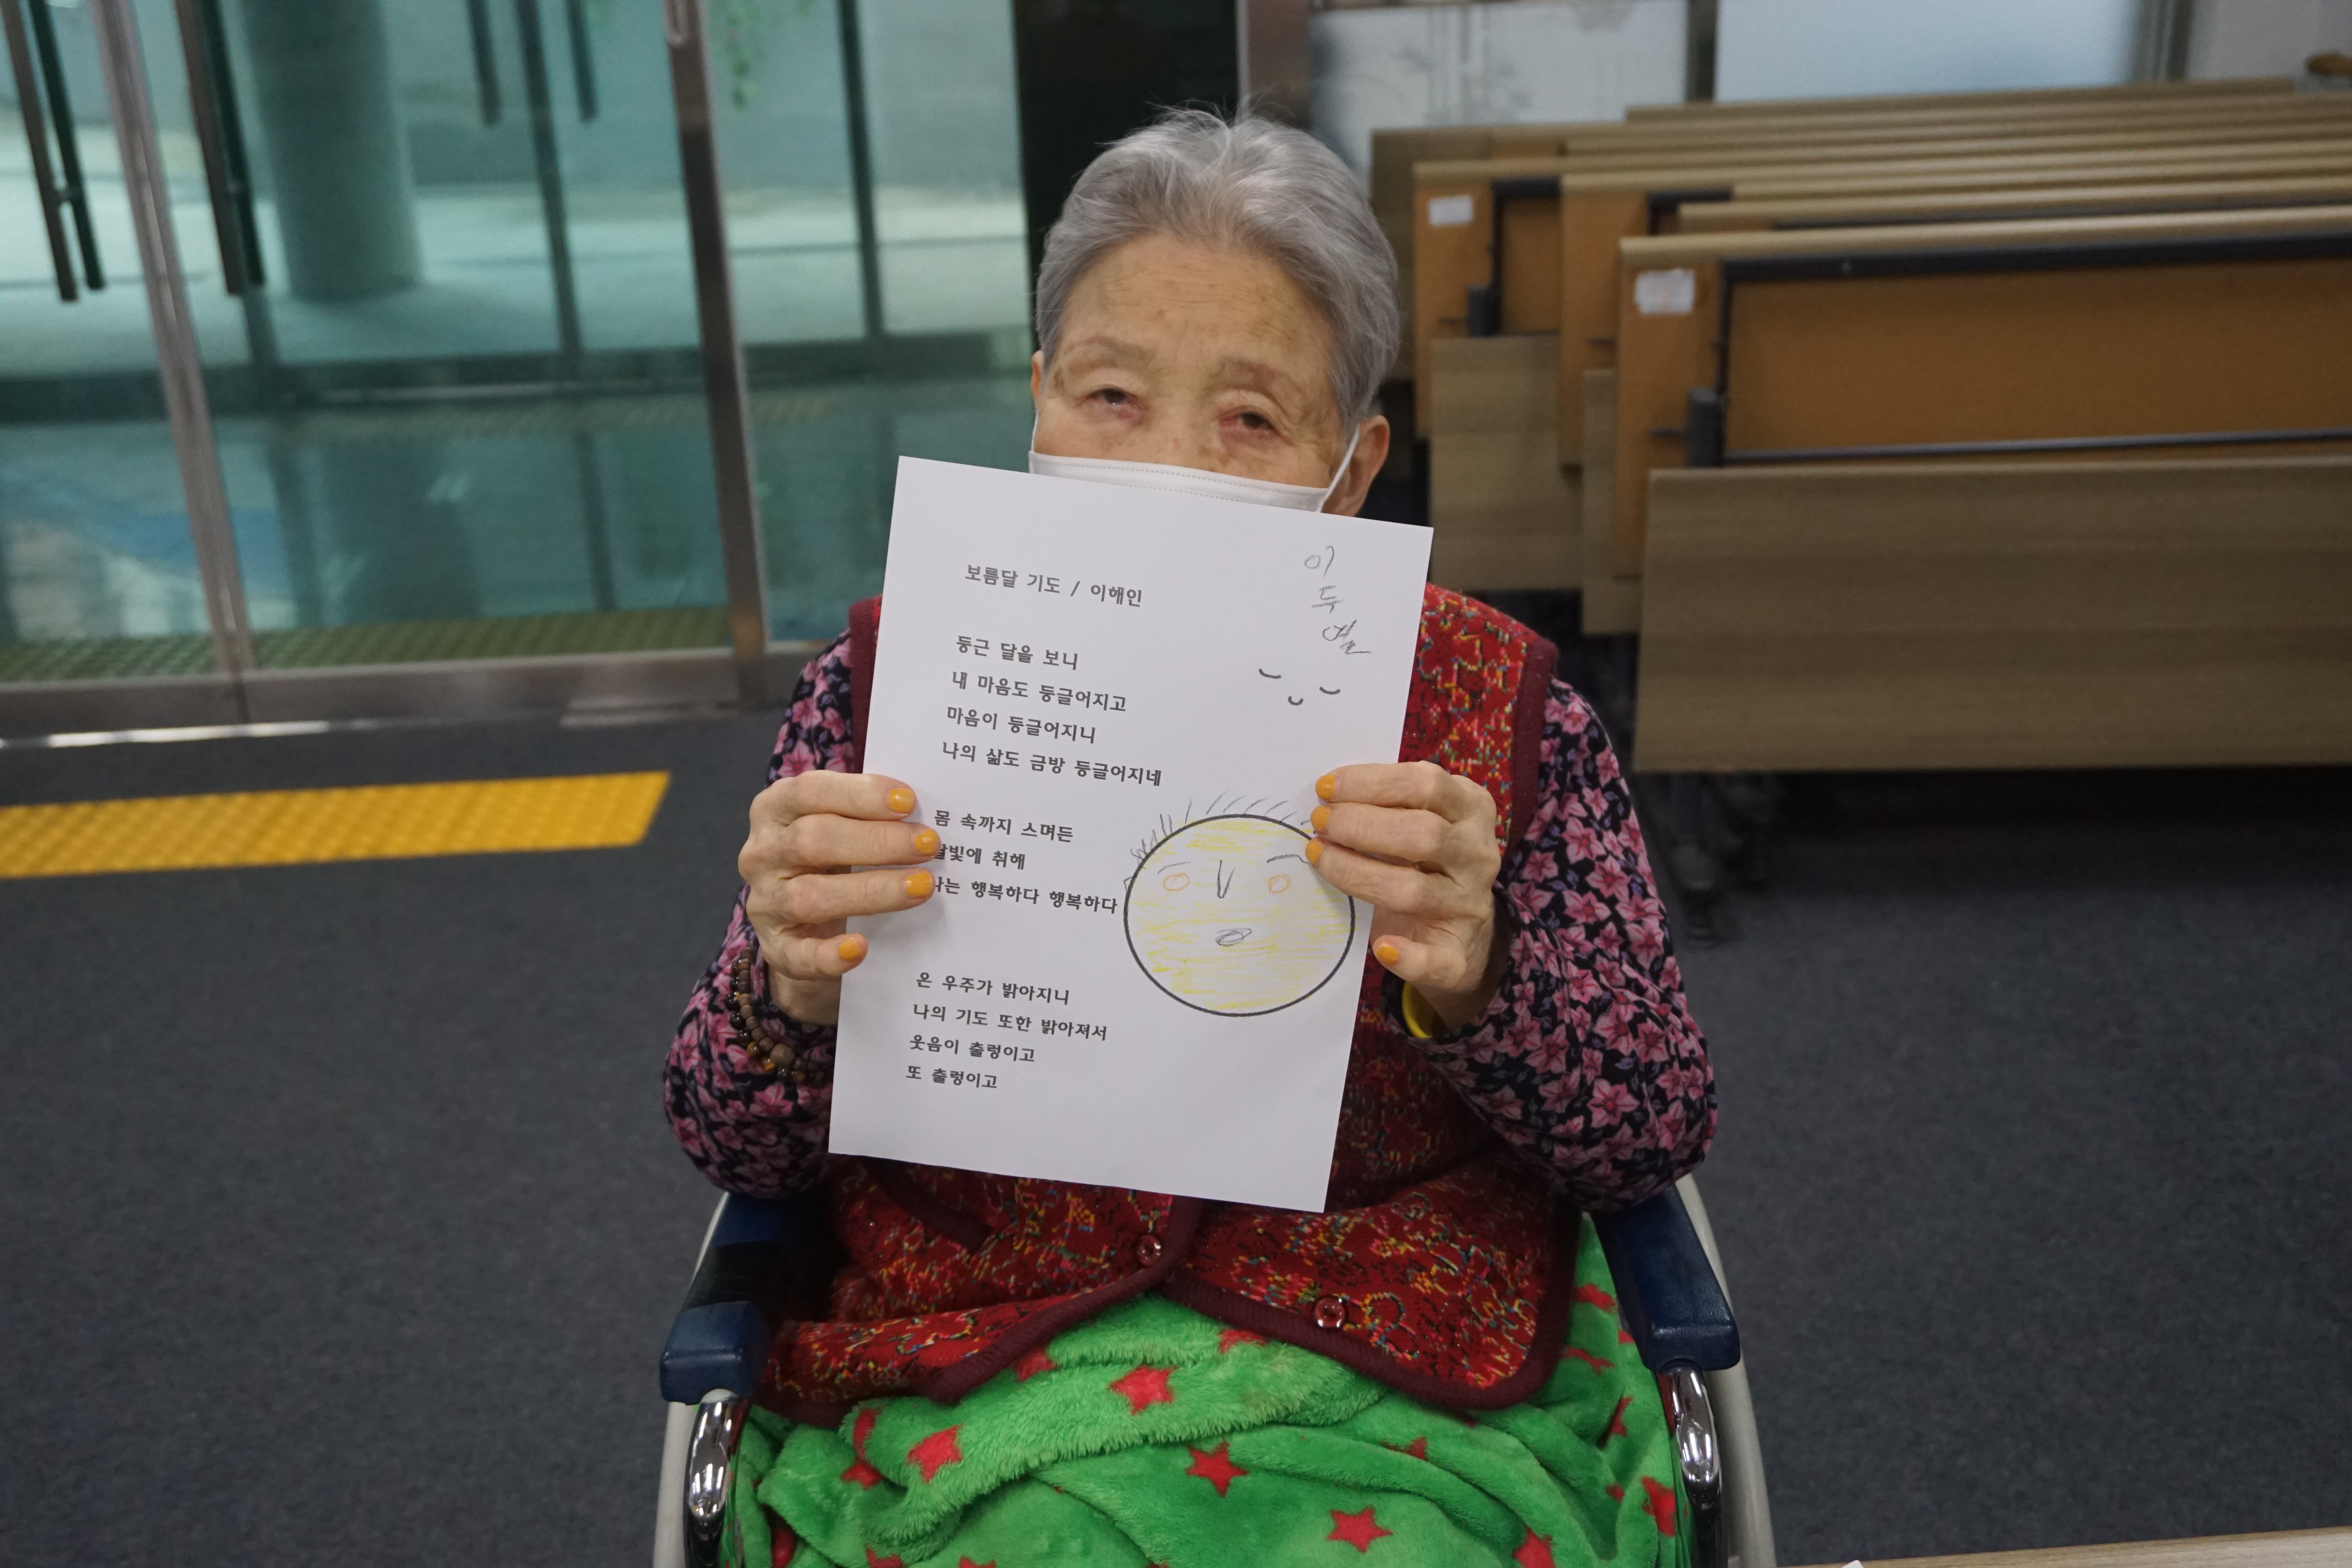 보름달 기도 / 이해인
이
두
둥근 달을 보니
내 마음도 둥글어지고
마음이 둥글어지니
나의 삶도 금방 둥글어지네
몸 속까지 스며든
달빛에 취해
나는 행복하다 행복하다
온 우주가 밝아지니
나의 기도 또한 밝아져서
웃음이 출렁이고
또 출렁이고